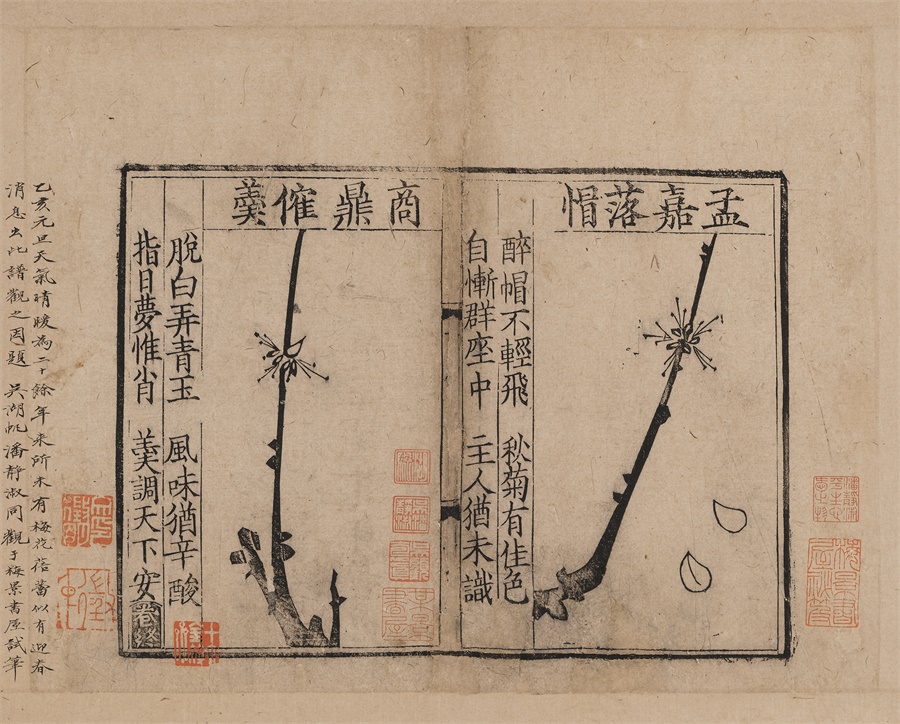 孟嘉落帽
醉帽不輕飛　秋菊有佳色
自慚群座中　主人猶未識
商鼎催羹
脫白弄青玉　風味猶辛酸
指日夢惟肖　羹調天下安
卷終
乙亥元旦天氣晴暖為二十餘年來所未有梅花蓓蕾似有迎春
消息出此譜觀之因題　吳湖帆潘靜淑同觀于梅景書屋試筆